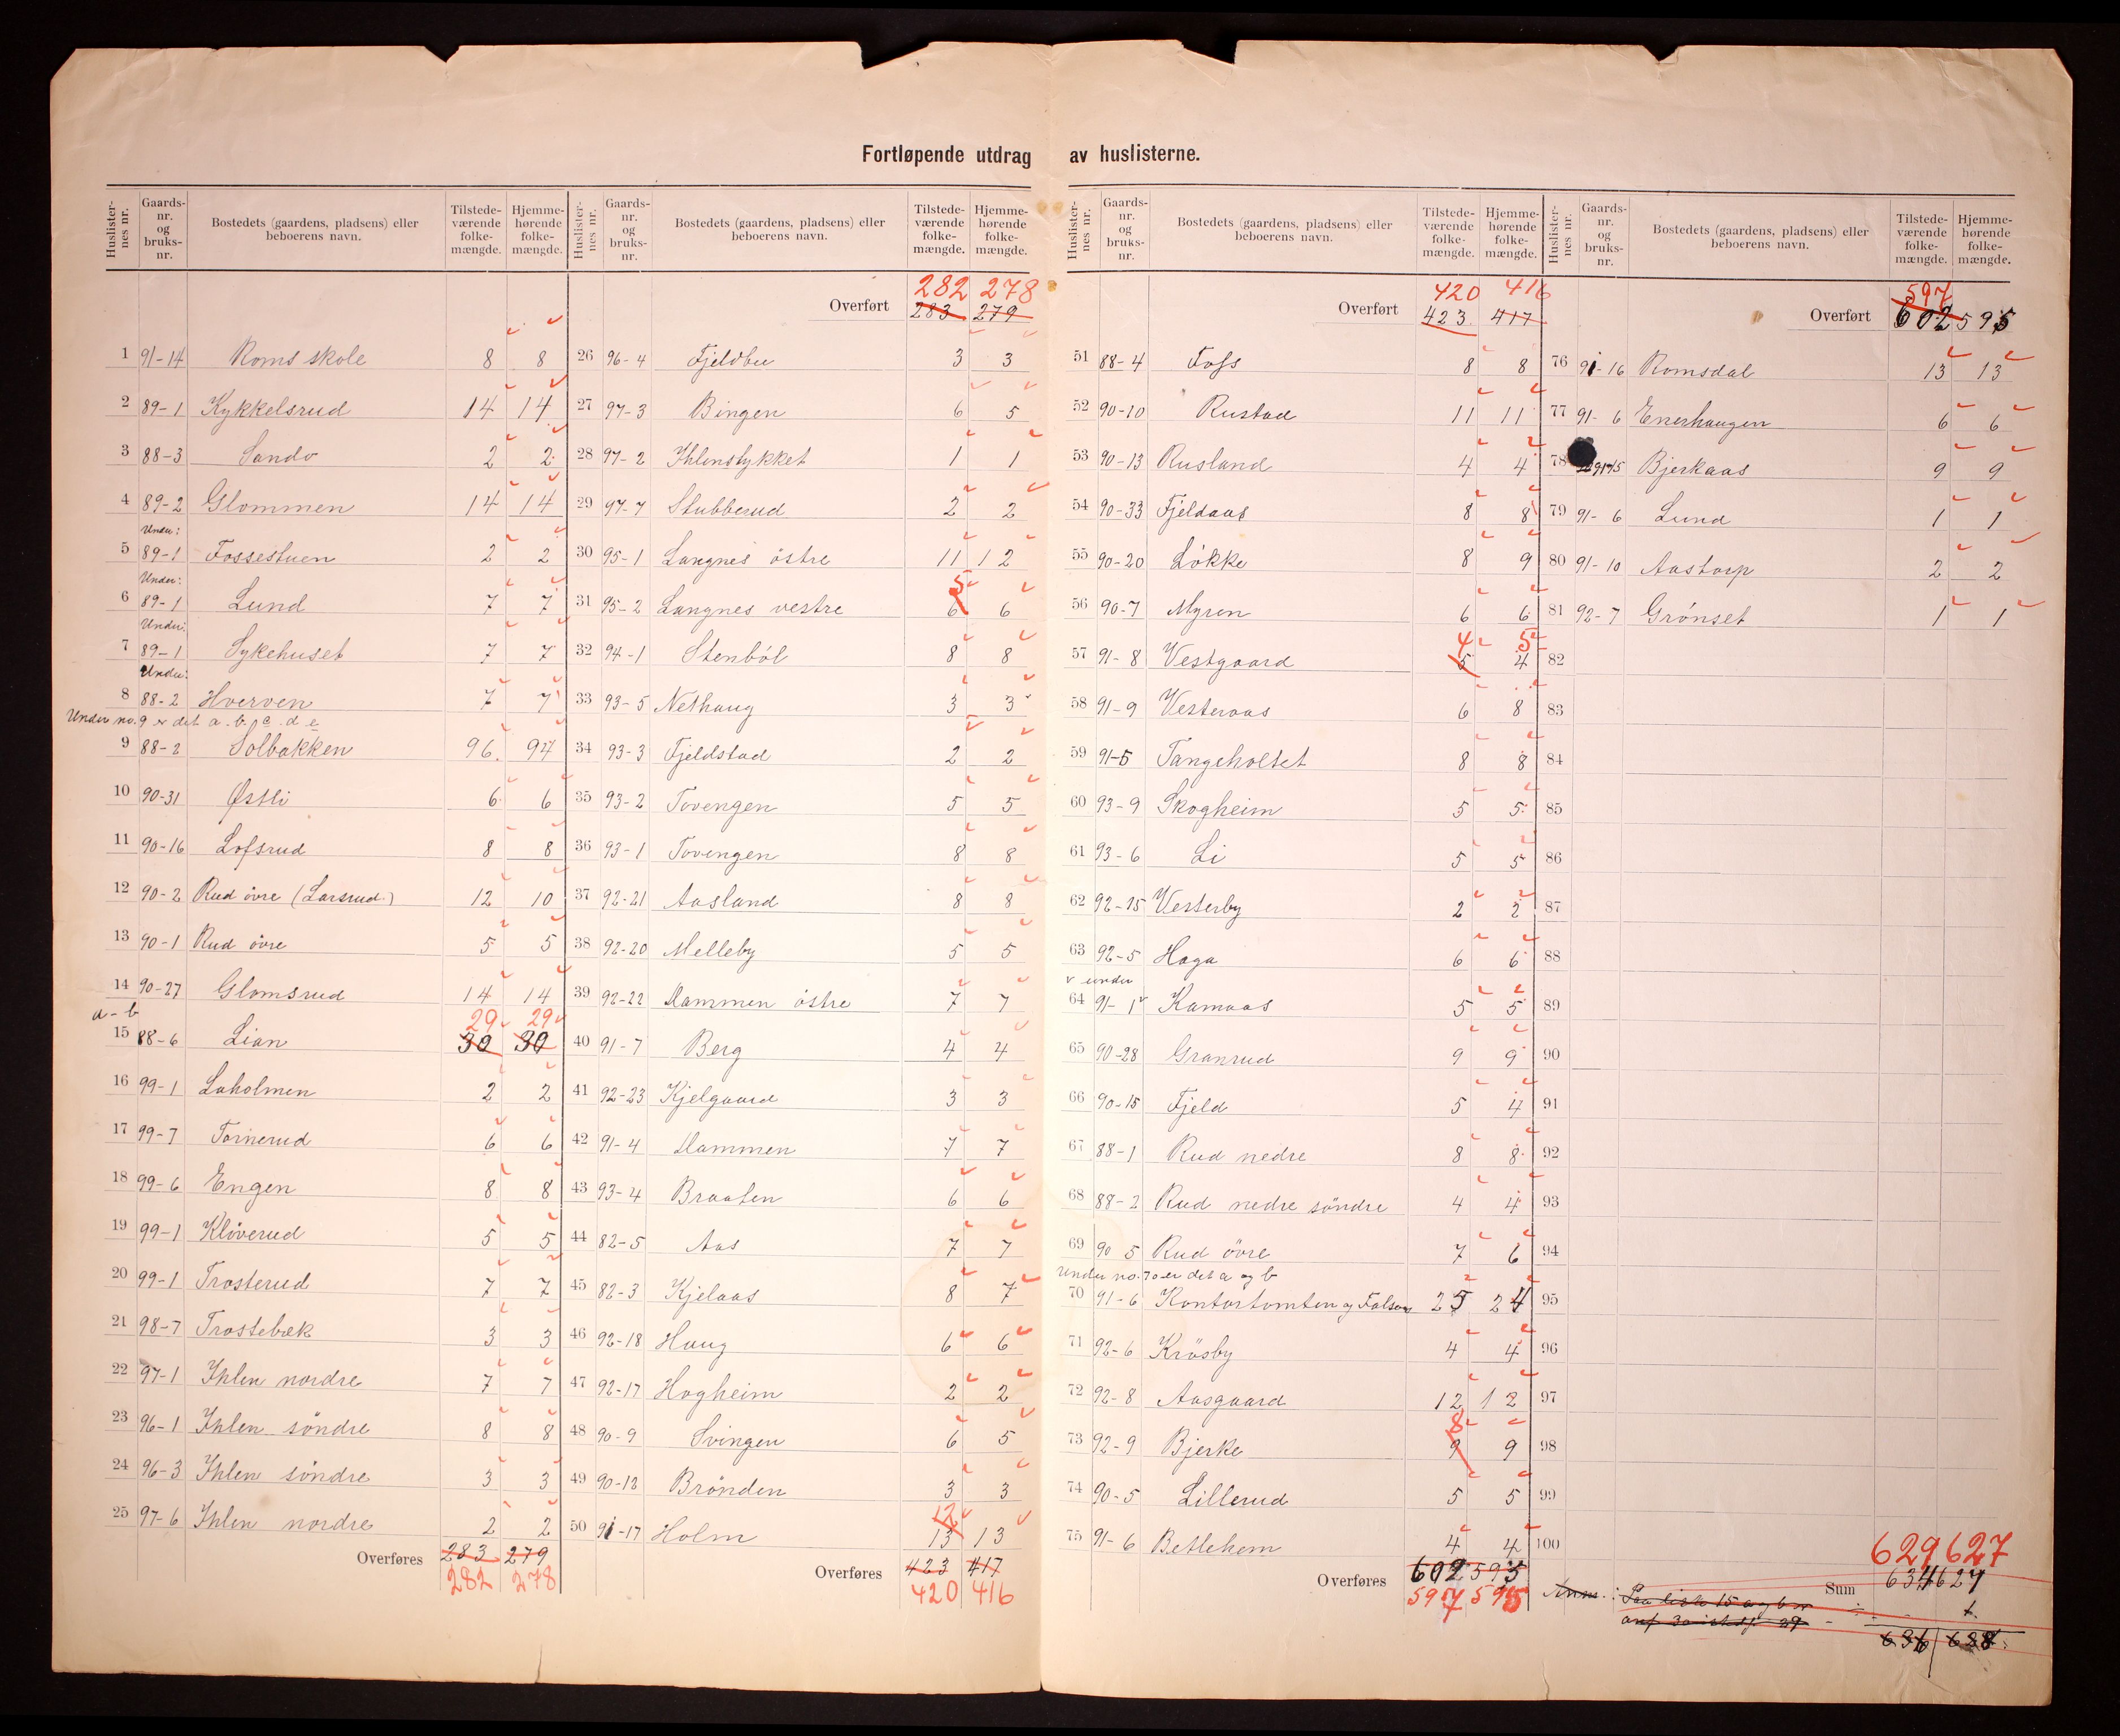 Fortløpende utdrag av huslisterne.
Huslister-nes nr. Gaards-nr. og bruks-nr. Bostedets (gaardens, pladsens) eller beboerens navn. Tilstede-værende folke-mængde. Hjemme-hørende folke-mængde.
1 91-14 Roms skole 8 8
2 89-1 Kykkelsrud 14 14
3 88-3 Sando 2 2
4 89-2 Glommen 14 14
Under:
5 89-1 Fossestuen 2 2
Under:
6 89-1 Lund 7 7
Under:
7 89-1 Sykehuset 7 7
Under:
8 88-2 Hverven 7 7
Under no. 9 er det a. b. c. d. e
9 88-2 Solbakken 96 94
10 90-31 Østli 6 6
11 90-16 Lofsrud 8 8
12 90-2 Rud övre (Larsrud.) 12 10
13 90-1 Rud övre 5 5
14 90-27 Glomsrud 14 14
a-b 29 29
15 88-6 Lian 30 30
16 99-1 Laholmen 2 2
17 99-7 Tornerud 6 6
18 99-6 Engen 8 8
19 99-1 Klöverud 5 5
20 99-1 Trosterud 7 7
21 98-7 Trostebæk 3 3
22 97-1 Ihlen nordre 7 7
23 96-1 Ihlen söndre 8 8
24 96-3 Ihlen söndre 3 3
25 97-6 Ihlen nordre 2 2
Overføres 283 279
282 278
Huslister-nes nr. Gaards-nr. og bruks-nr. Bostedets (gaardens, pladsens) eller beboerens navn. Tilstede-værende folke-mængde. Hjemme-hørende folke-mængde.
282 278
Overført 283 279
26 96-4 Fjeldbu 3 3
27 97-3 Bingen 6 5
28 97-2 Ihlenstykket 1 1
29 97-7 Stubberud 2 2
30 95-1 Langnes östre 11 12
5
31 95-2 Langnes vestre 6 6
32 94-1 Stenböl 8 8
33 93-5 Nethaug 3 3
34 93-3 Fjeldstad 2 2
35 93-2 Tovengen 5 5
36 93-1 Tovengen 8 8
37 92-21 Aasland 8 8
38 92-20 Melleby 5 5
39 92-22 Mammen östre 7 7
40 91-7 Berg 4 4
41 92-23 Kjelgaard 3 3
42 91-4 Mammen 7 7
43 93-4 Braaten 6 6
44 82-5 Aas 7 7
45 82-3 Kjelaas 8 7
46 92-18 Haug 6 6
47 92-17 Hogheim 2 2
48 90-9 Svingen 6 5
49 90-12 Brönden 3 3
12
50 91-17 Holm 13 13
Overføres 423 417
420 416
Huslister-nes nr. Gaards-nr. og bruks-nr. Bostedets (gaardens, pladsens) eller beboerens navn. Tilstede-værende folke-mængde. Hjemme-hørende folke-mængde.
420 416
Overført 423 417
51 88-4 Foss 8 8
52 90-10 Rustad 11 11
53 90-13 Rusland 4 4
54 90-33 Fjeldaas 8 8
55 90-20 Lökke 8 9
56 90-7 Myren 6 6
4 5
57 91-8 Vestgaard 5 4
58 91-9 Vesteraas 6 8
59 91-5 Tangeholtet 8 8
60 93-9 Skogheim 5 5
61 93-6 Li 5 5
62 92-15 Vesterby 2 2
63 92-5 Haga 6 6
v under
64 91-1 Kamaas 5 5
65 90-28 Granrud 9 9
66 90-15 Fjeld 5 4
67 88-1 Rud nedre 8 8
68 88-2 Rud nedre söndre 4 4
69 90 5 Rud övre 7 6
Under no. 70 er det a og b
70 91-6 Kontortomten og 25 24
71 92-6 Krösby 4 4
72 92-8 Aasgaard 12 12
8
73 92-9 Bjerke 9 9
74 90-5 Lillerud 5 5
75 91-6 Betlehem 4 4
Overføres 602 595
597 595
Huslister-nes nr. Gaards-nr. og bruks-nr. Bostedets (gaardens, pladsens) eller beboerens navn. Tilstede-værende folke-mængde. Hjemme-hørende folke-mængde.
597
Overført 602 595
76 91-16 Romsdal 13 13
77 91-6 Enerhaugen 6 6
78 91-15 Bjerkaas 9 9
79 91-6 Lund 1 1
80 91-10 Aastorp 2 2
81 92-7 Grönset 1 1
82
83
84
85
86
87
88
89
90
91
92
93
94
95
96
97
98
99
100
629 627
Sum 634 627
Anm.: Paa liste 15 a og b er
636 688